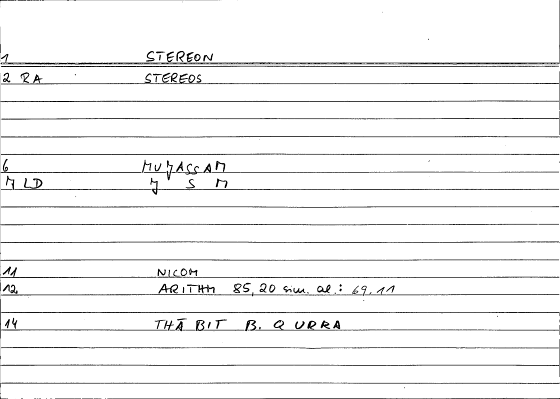 1 STEREON
2 RA STEREOS
6 MUǦASSAM
7 LD Ǧ S M
11 NICOM
12 ARITHM 85,20 sim. al.: 69.11
14 THĀBIT B. QURRA